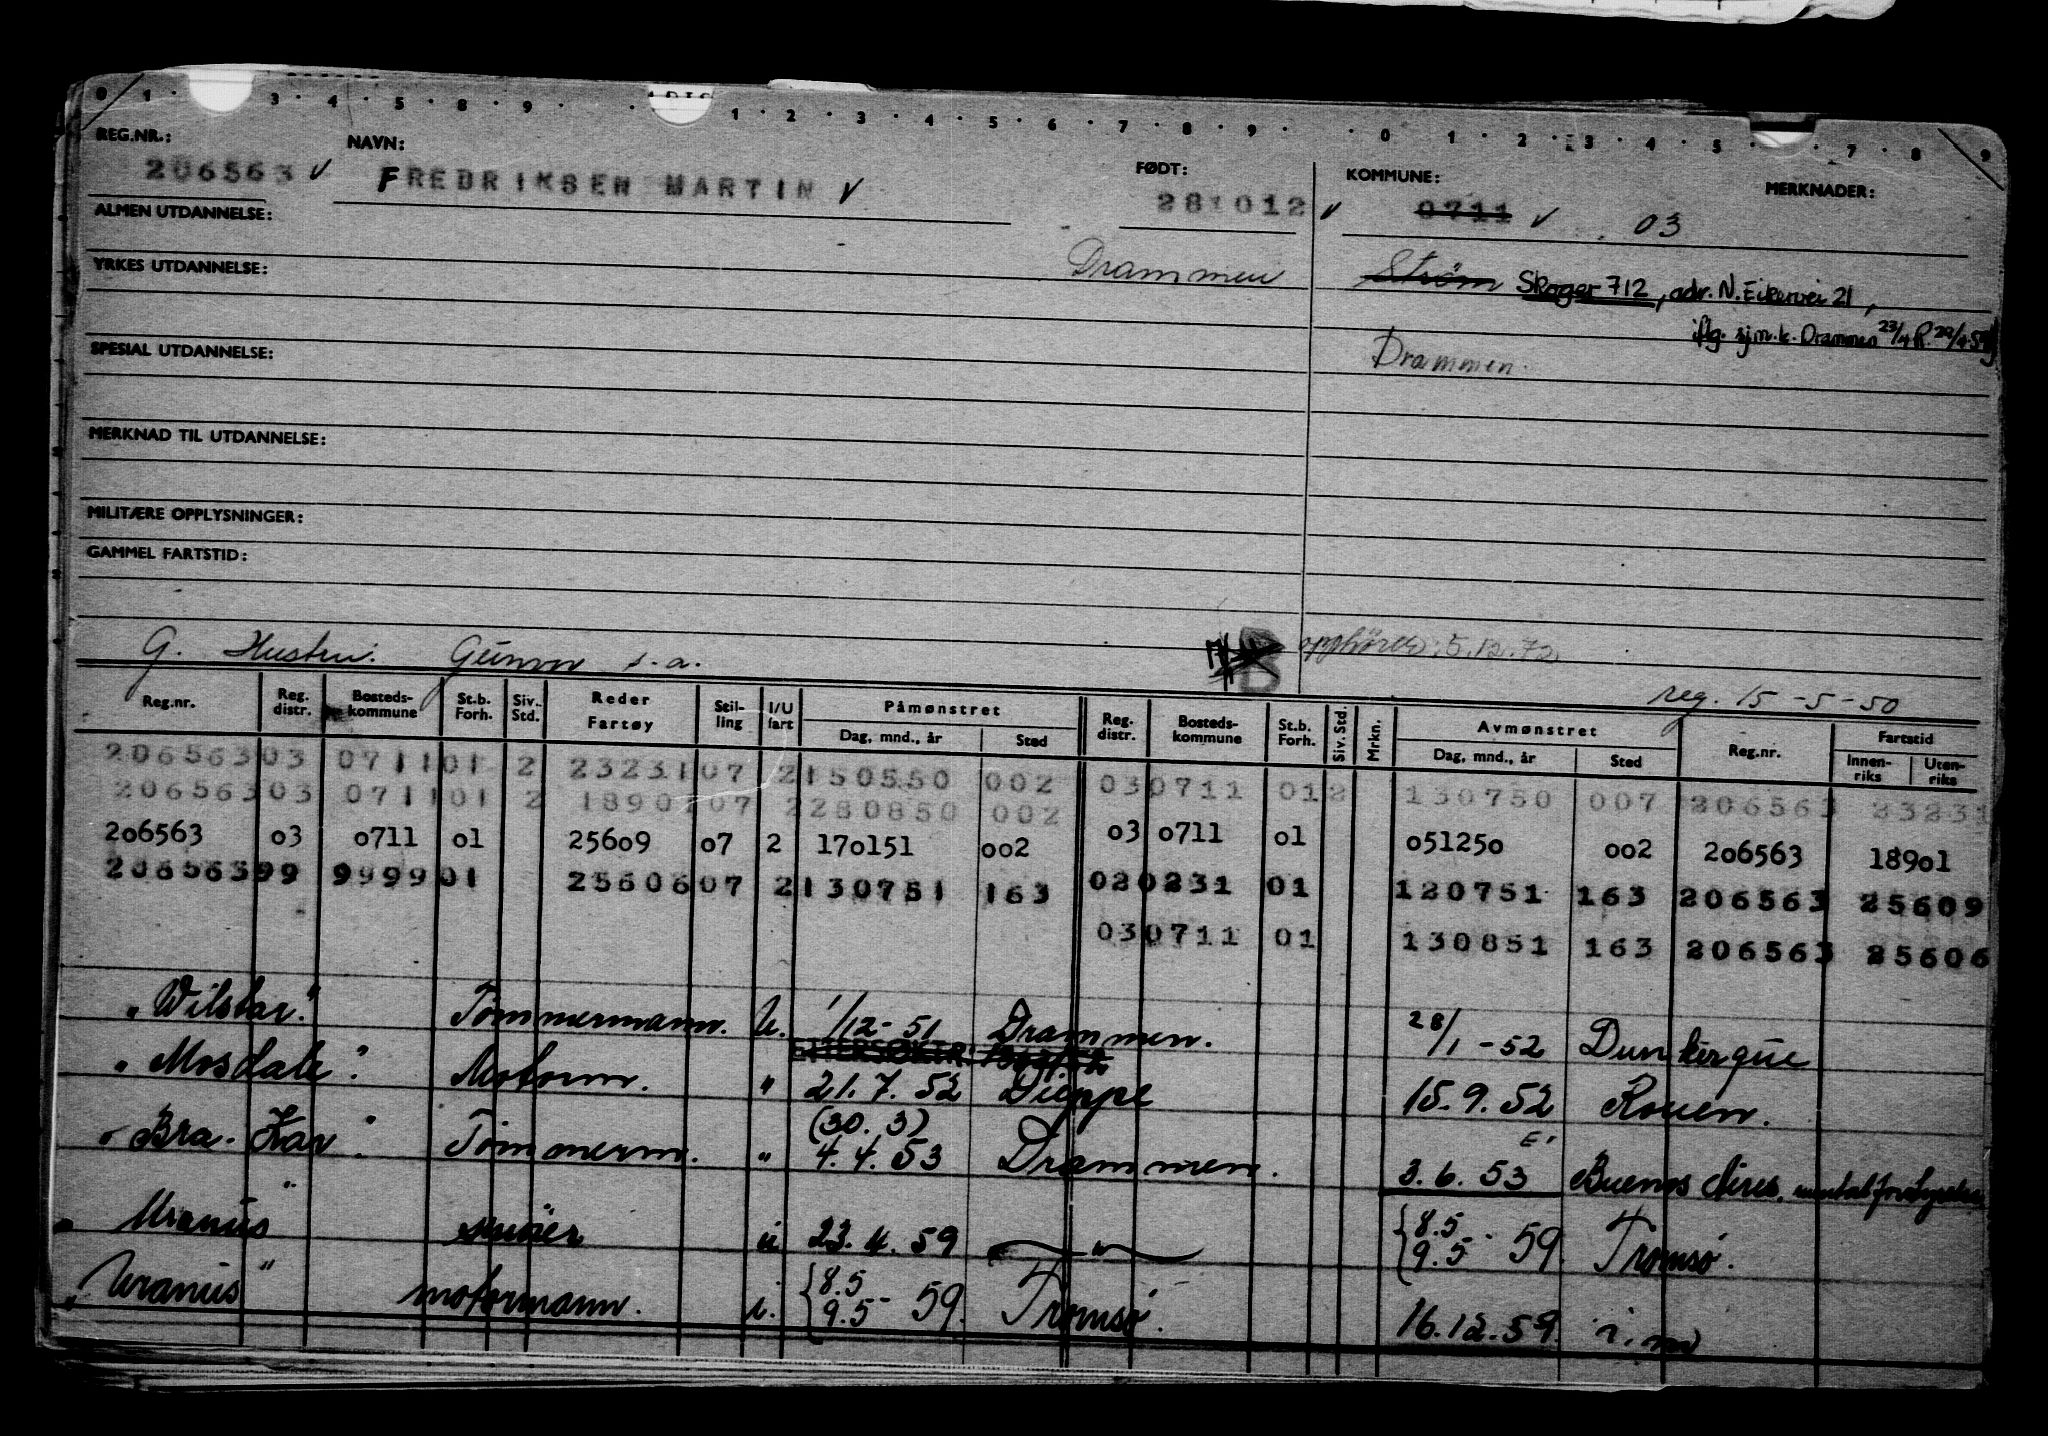 REG.NR.: NAVN: FØDT: KOMMUNE: MERKNADER:
206563 ✓ FREDRIKSEN MARTIN ✓ 281012 ✓ 0711 ✓ 03
ALMEN UTDANNELSE:
Drammen Strøm Skoger 712, adr. N. Eikervei 21,
YRKES UTDANNELSE:
iflg. sjm.k. Drammen 23/4
SPESIAL UTDANNELSE: Drammen.
MERKNAD TIL UTDANNELSE:
MILITÆRE OPPLYSNINGER:
GAMMEL FARTSTID:
G. Hustru: Gunvor s.a. B opphører: 5.12.72
reg. 15-5-50
Reg.nr. Reg. distr. Bosteds-kommune St.b. Forh. Siv. Std. Reder Fartøy Stil-ling I/U fart Påmønstret Dag, mnd., år Sted Reg. distr. Bosteds-kommune St.b. Forh. Siv. Std. Mrkn. Avmønstret Dag, mnd., år Sted Reg.nr. Fartstid Innen-riks Uten-riks
206563 03 0711 01 2 23231 07 2 150550 002 03 0711 01 2 130750 007 206563 23231
206563 03 0711 01 2 18901 07 2 280850 002 03 0711 01 051250 002 206563 18901
206563 03 0711 01 25609 07 2 170151 002 02 0231 01 120751 163 206563 25609
206563 99 9999 01 25606 07 2 130751 163 03 0711 01 130851 163 206563 25606
"Wilstar" Tømmermann. U. 1/12-51 Drammen. 28/1-52 Dunkerque
ETTERSØKTR.
"Mosdale". Motorm. " 21.7.52 Dieppe 15.9.52 Rouen.
"Bra-Kar". Tømmerm. " (30.3) 4.4.53 Drammen. 3.6.53 Buenos Aires.
"Uranus" u 23.4.59 " {8.5 9.5 - 59. Tromsø.
"Uranus" motormann. i. {8.5 9.5 - 59. Tromsø. 16.12.59. i.m